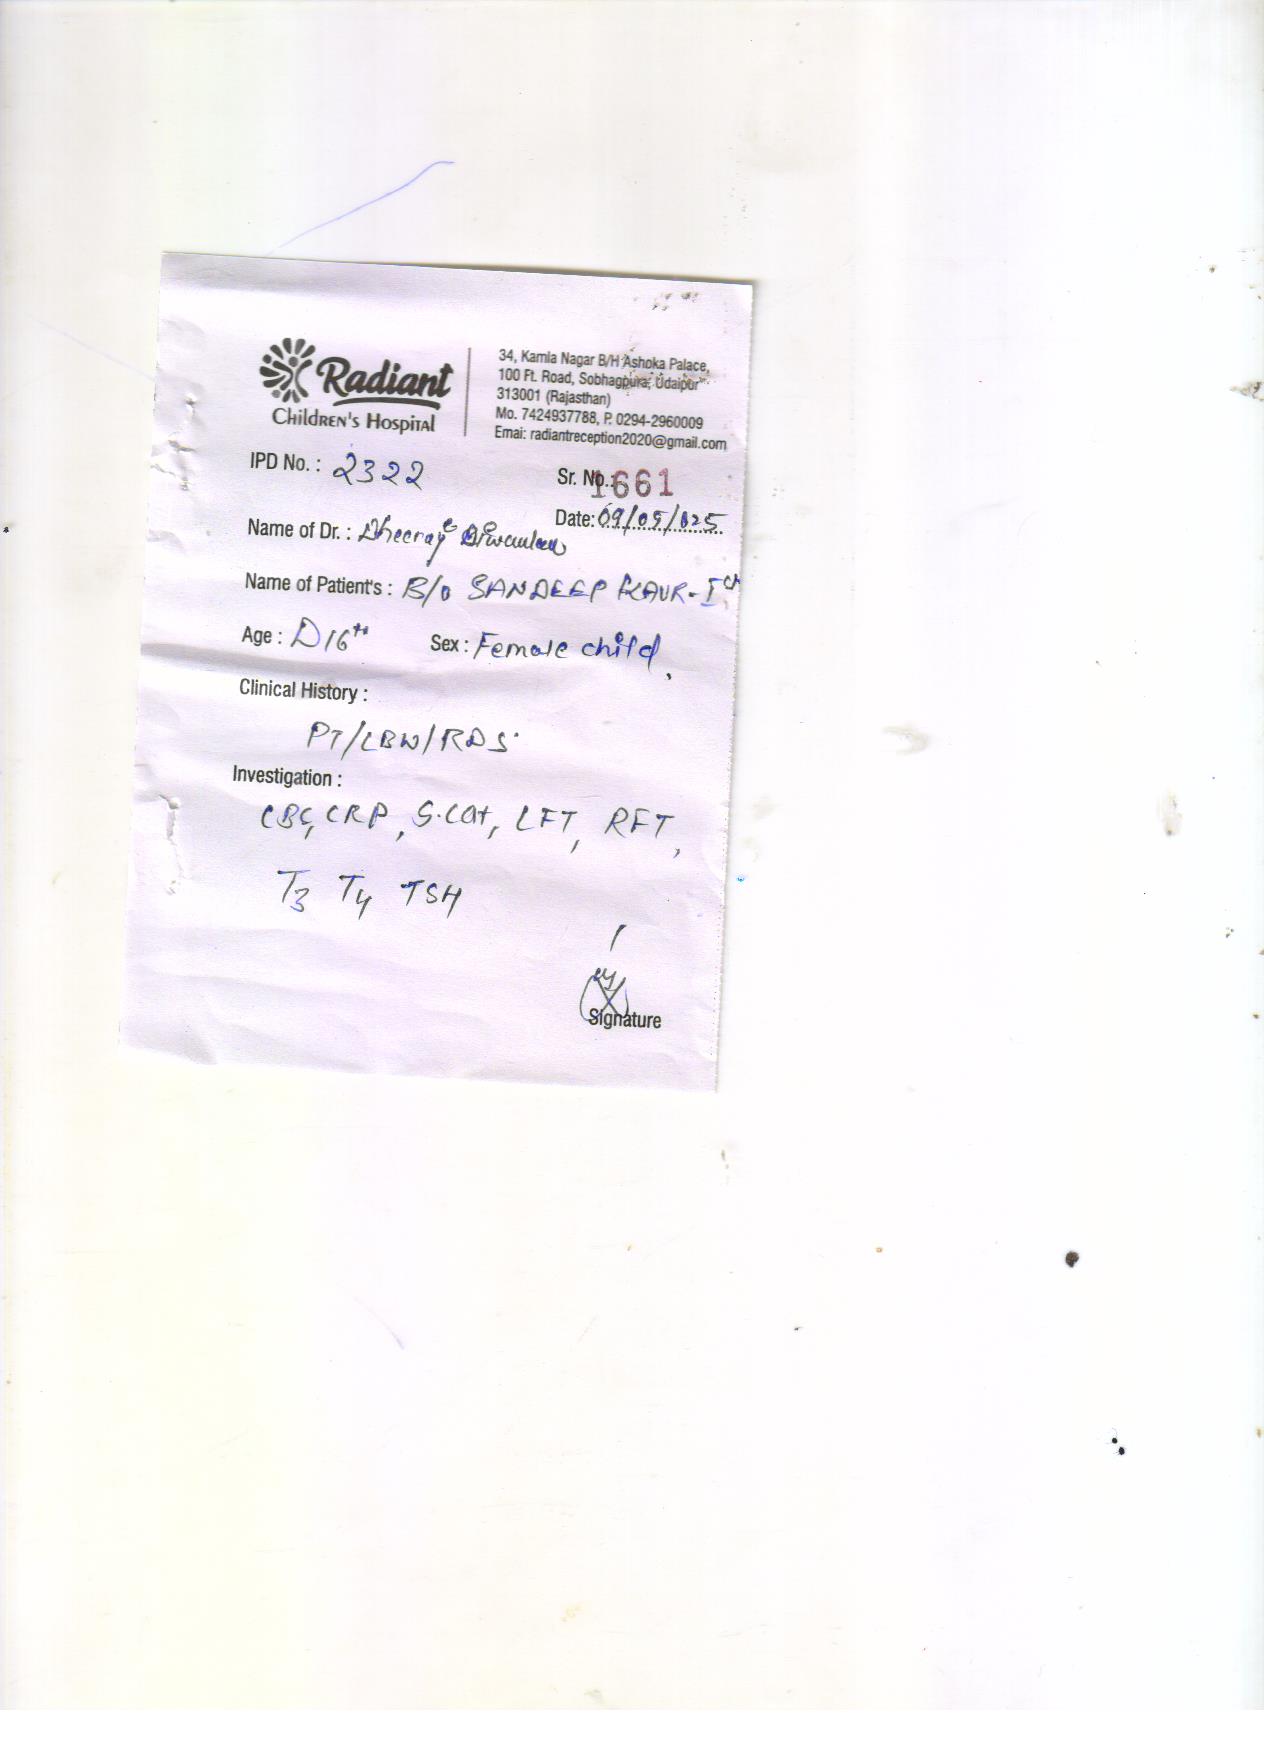 Radiant
Children's Hospital
34, Kamla Nagar B/H Ashoka Palace,
100 Ft. Road, Sobhagpura, Udaipur
313001 (Rajasthan)
Mo. 7424937788, P. 0294-2960009
Emai: radiantreception2020@gmail.com
IPD No. : 2322
Sr. No.: 1661
Date: 09/05/025
Name of Dr. : Dheeraj
Name of Patient's : B/o SANDEEP KAUR-I
Age : D16th Sex : Female child
Clinical History :
PT/LBW/RDS
Investigation :
CBC, CRP, S.Cat, LFT, RFT,
T3 T4 TSH
Signature